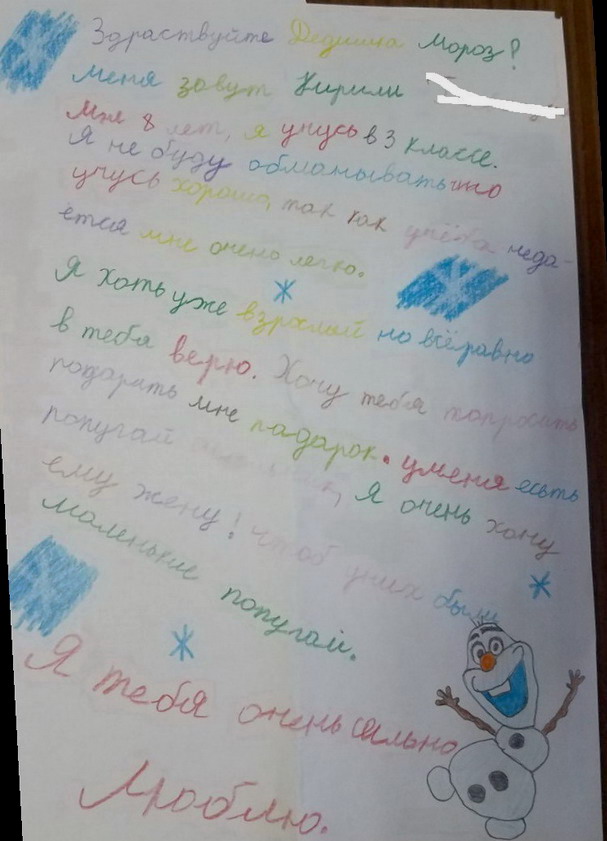 Здраствуйте Дедушка Мороз!
меня зовут Кирилл
Мне 8 лет, я учусь в 3 классе.
Я не буду обманывать что
учусь хорошо, так как учёба неда-
ётся мне очено легко.
Я хоть уже взрослый но всёравно
в тебя верю. Хочу тебя попросить
подарить мне падарок. уменя есть
попугай Я очень хочу
ему жену! чтоб уних были
маленькие попугай.
Я тебя очень сильно
Люблю.